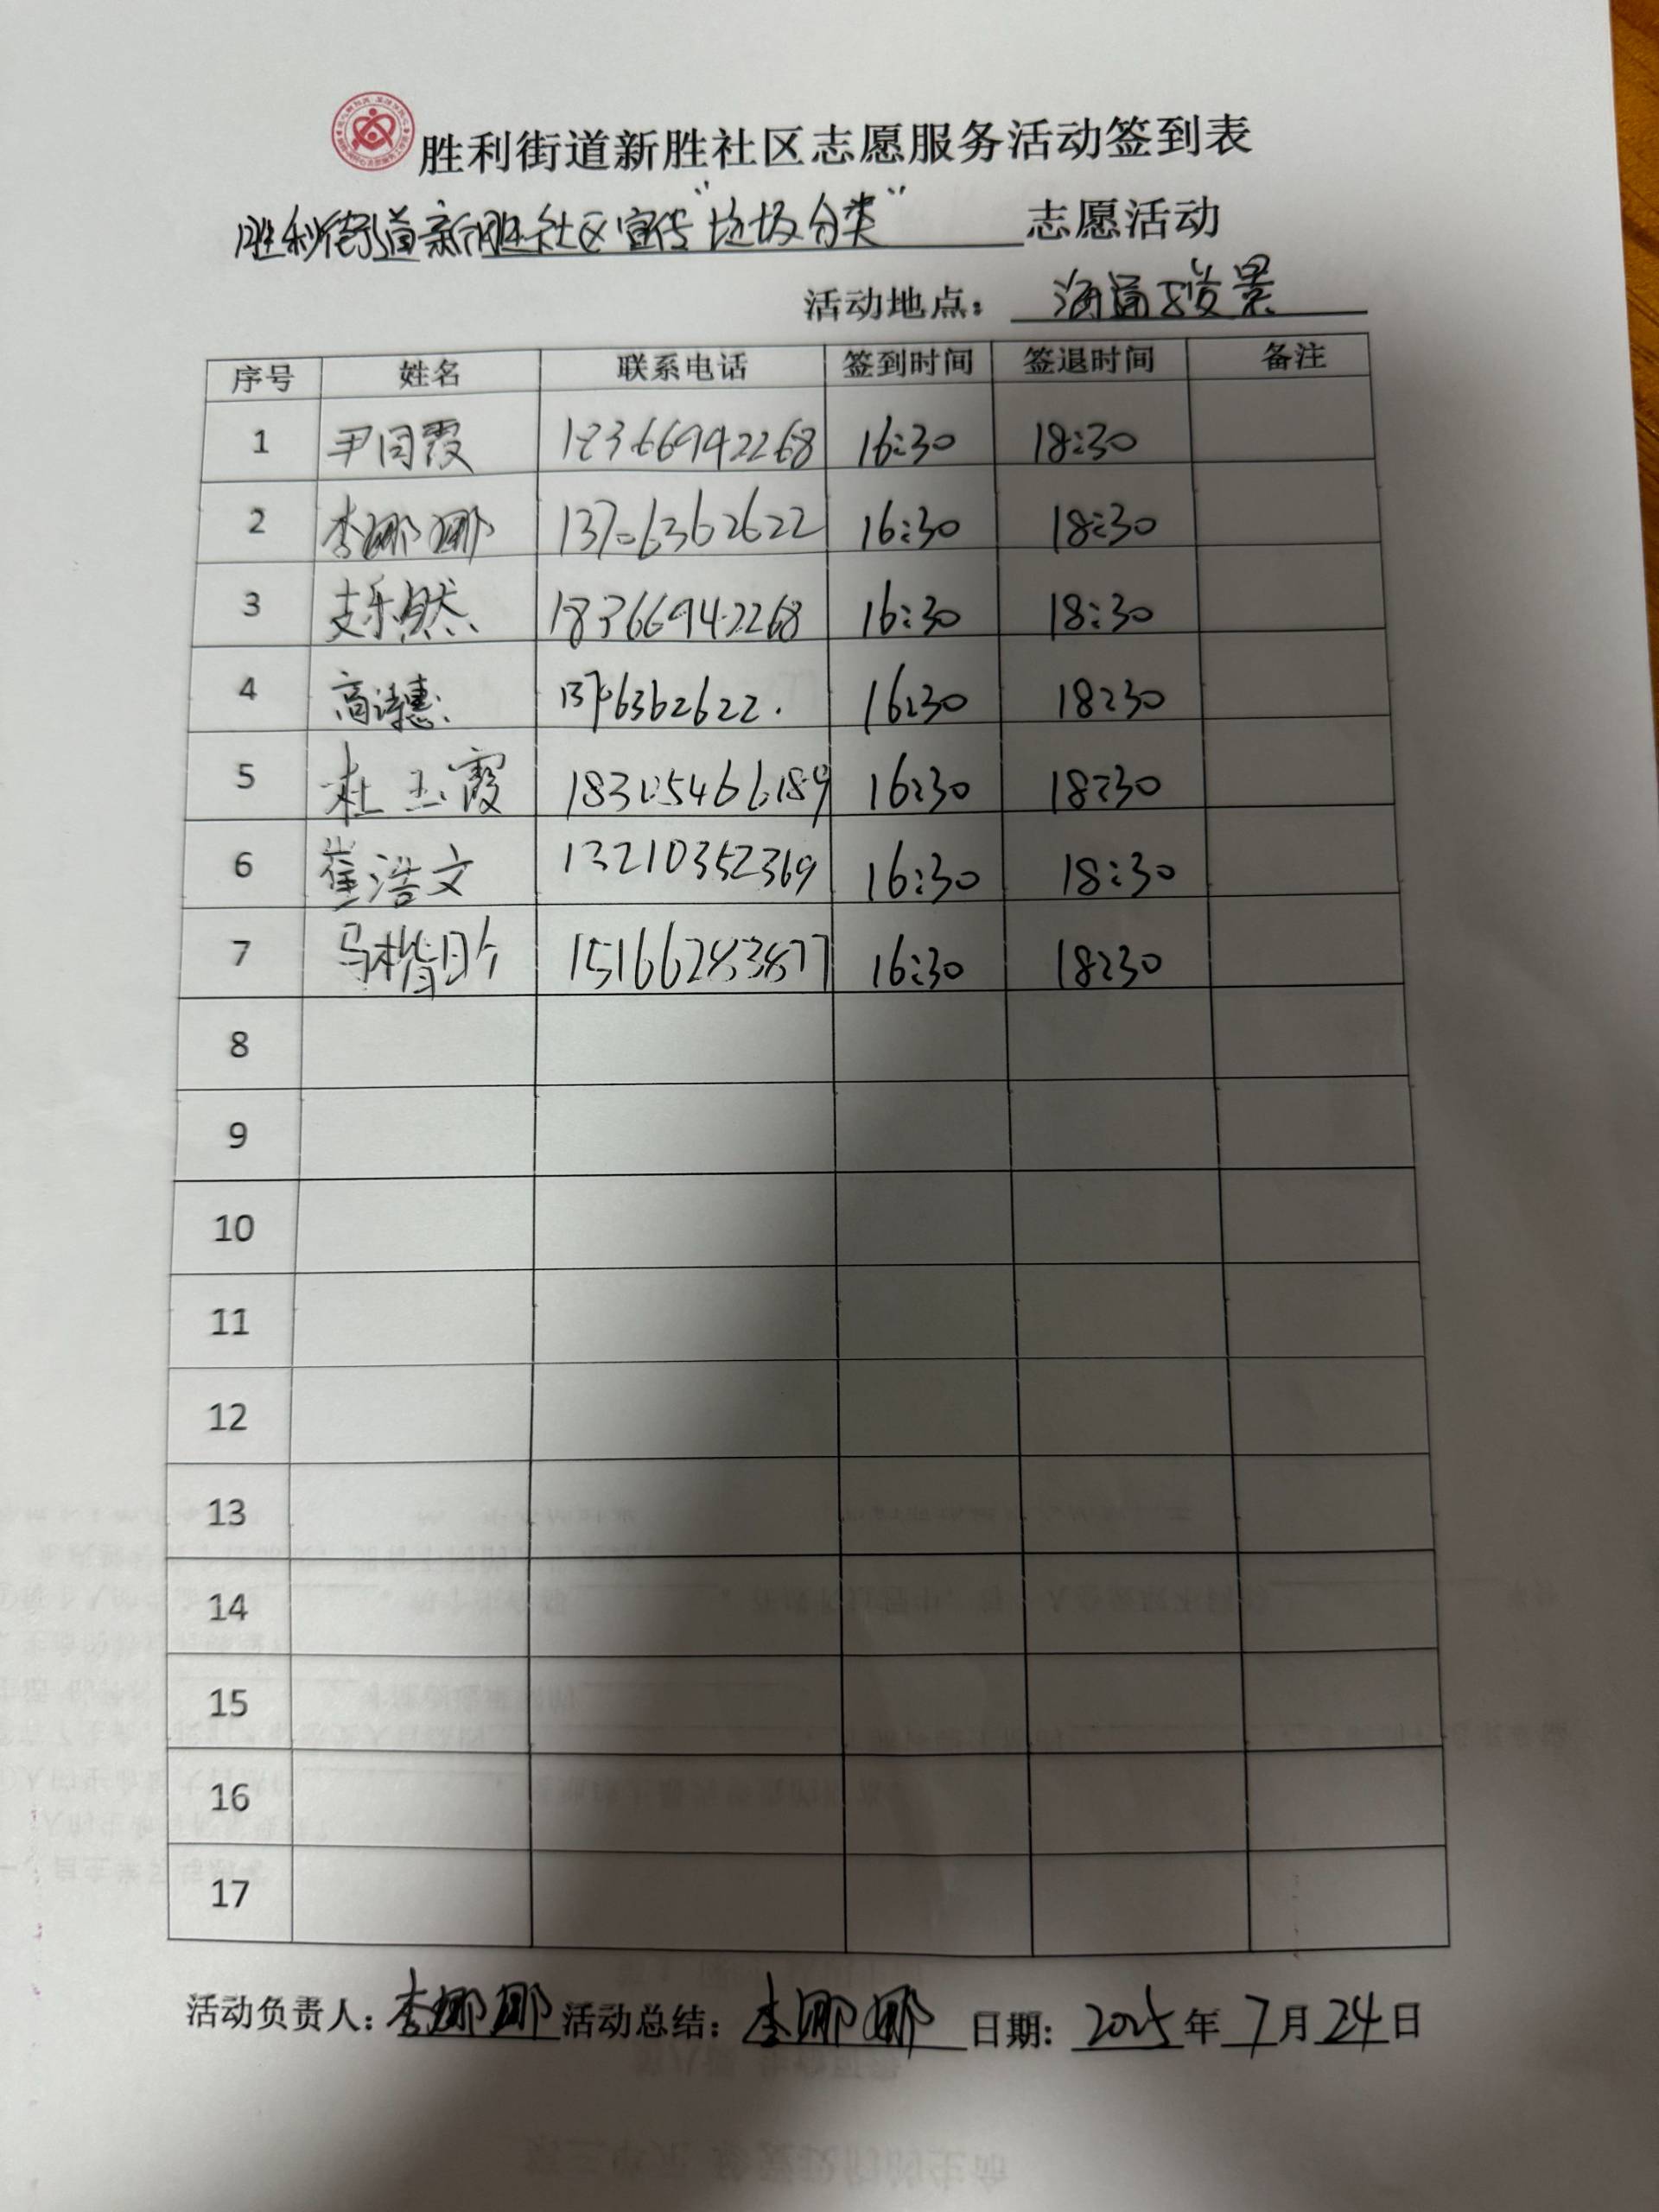 胜利街道新胜社区志愿服务活动签到表
胜利街道新胜社区宣传"垃圾分类" 志愿活动
活动地点: 海通骏景
序号 姓名 联系电话 签到时间 签退时间 备注
1 尹同霞 18366942268 16:30 18:30
2 李娜娜 13706362622 16:30 18:30
3 支乐然 18366942268 16:30 18:30
4 高诗惠 13706362622 16:30 18:30
5 杜玉霞 18305466189 16:30 18:30
6 崔浩文 13210352369 16:30 18:30
7 马楷昕 15166283877 16:30 18:30
8
9
10
11
12
13
14
15
16
17
活动负责人: 李娜娜 活动总结: 李娜娜 日期: 2025年7月24日